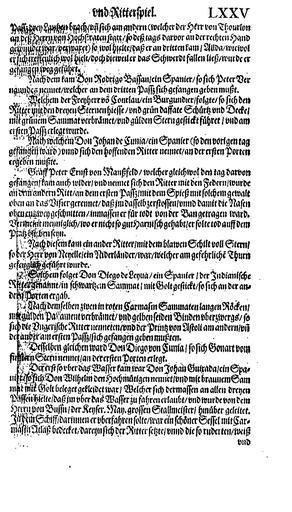 vnd Ritterspiel. LXXV
Passz von Lansen brach wil sich am andern (welcher der Herr von Thourlon
an deß Herrn von Hochstraten statt / so deß tags darvor an der rechten Hand
verwundet war / verwaret) so wol hielte / daß er an dritten kam / Allda / wiewol
er sich treffentlich wol hielt / doch dieweil er das Schwerdt fallen ließ / wurde er
gefangen weg geführt.
Nach dem kam Don Rodrigo Bassan / ein Spanier / so sich Peter Ver
nennet / welcher an dem dritten Passz sich gefangen geben mußt.
Welchem der Freyherr võ Conslau / ein Burgunder / folgte / so sich den
Ritter mit den dreyen Sternen hiesse / vnd grün daffate Schürtz vnd Decke /
mit grünem Sammat verbrämet / vnd gülden Stern gestickt führet / vnd am
ersten Passz erlegt wurde.
Nach welchem Don Johan de Cunia / ein Spanier (so den vorigen tag
gefangen ward) vnd sich den hoffenden Ritter nennet / an der ersten Porten
ergeben mußte.
Graff Peter Ernst von Manßfeld / welcher gleichwol den tag darvon
gefangen / kam auch wider / vnd nennet sich den Ritter mit den Federn / wurde
an dem andern Ritt / an dem ersten Passz / mit dem Spieß mit solchem gewalt
oben an das Visier gerennet / daß im dasselb zerstossen / vnd damit die Nasen
geschnitten / inmassen er für todt von der Ban getragen ward.
meniglich / wo er nicht so gut Harnisch gehabt / er solte tod auff dem
Platz blieben seyn.
Nach diesem kam ein ander Ritter / mit dem blawen Schilt voll Stern /
so der Herr von Nepolle / ein Niderländer / war / welcher am gesehrlicht Thurn
gefänglich geführt wurde.
Solchem folget Don Diego de Leyua / ein Spanier / der Indianische
Ritter genannt / in schwartzen Sammat / mit Golt gestickt / so sich an der an-
dern Porten ergab.
Nach demselben zween in roten Carmasin Sammaten langen Röcken /
mit gülden Passament verbrämet / vnd gelben seiden Binden vberzwergs / so
sich die Vngerische Ritter nenneten / vnd der Printz von Astoli am andern / vñ
der ander am ersten Passz sich gefangen geben musten.
Desselben gleichen ward Don Diego von Cunia / so sich Gonart vom
Stern nennete / an der ersten Porten erlegt.
Der erst so vber das Wasser kam war Don Johan Quixada / ein Spa-
nier / so sich Don Wilhelm den Hochmütigen nennet / vnd mit braunem Sam
mat mit Golt belegt gekleidet war / Welcher sich dermassen an allen dreyen
Passen hielte / daß jm vber das Wasser zu fahren erlaubt / vnd wurde von dem
Herrn von Bussu / der Keyser. May. grossen Stallmeister / hinüber geleitet.
In dem Schiff / darinnen er vberfahren solte / war ein schöner Sessel mit Car-
masin Atlaß bedecket / dareyn sich der Ritter setzte / vnnd die so ruderten / weiß
vnd